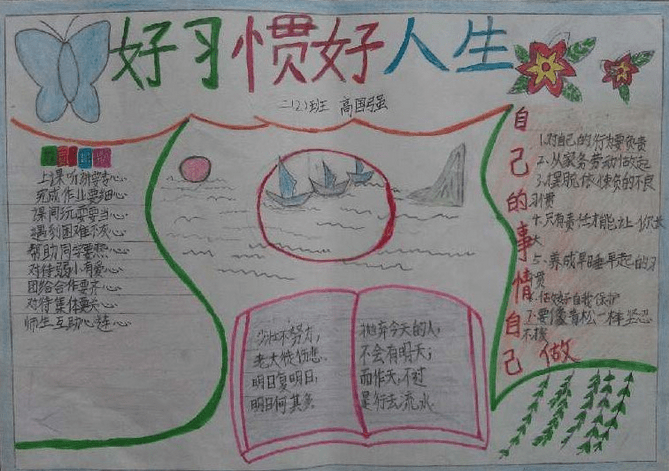 好习惯好人生
二(2)班 高国强
上课听讲要专心
完成作业要细心
课间玩耍要当心
遇到困难不灰心
帮助同学要热心
对待弱小有爱心
团结合作要齐心
对待集体要关心
师生互助心连心
少壮不努力,
老大徒伤悲.
明日复明日,
明日何其多.
抛弃今天的人,
不会有明天;
而昨天,不过
是行去流水.
自己的事情自己做
1.对自己的行为要负责
2.从家务劳动做起
3.摆脱依
不良
习惯
4.只有责任才能让你长
大
5.养成早睡早起的习
惯
6.做好自我保护
7.要像青松一样坚忍
不拔